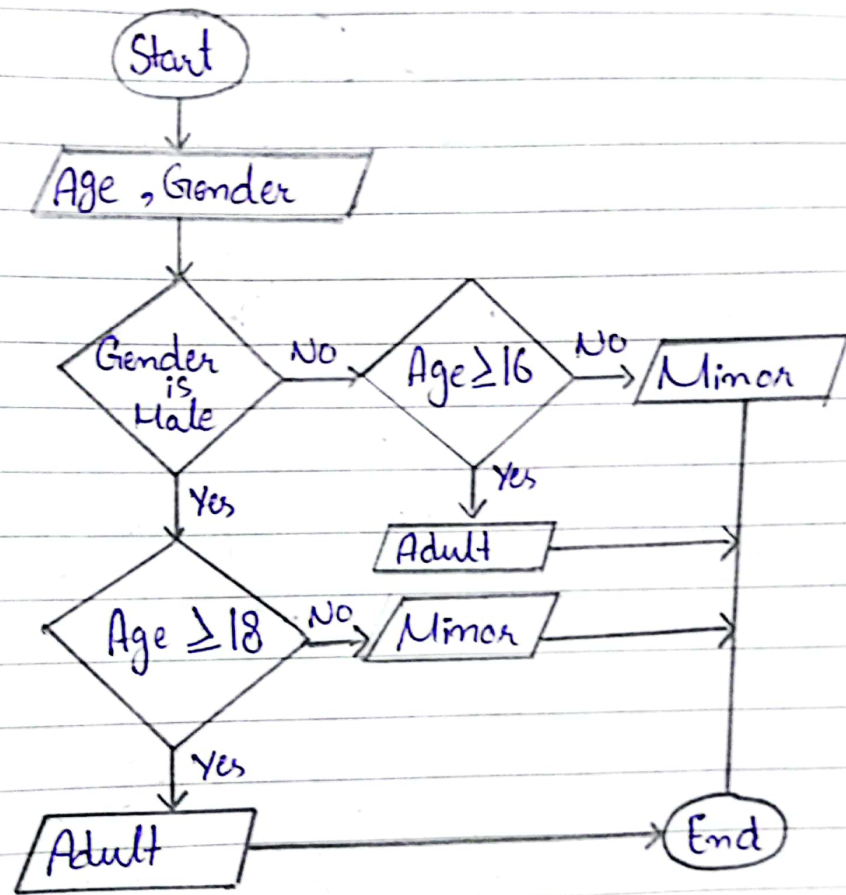 Start
Age, Gender
Gender
is
Male
NO
Age ≥ 16
NO
Minor
Yes
Adult
Yes
Age ≥ 18
NO
Minor
Yes
Adult
End